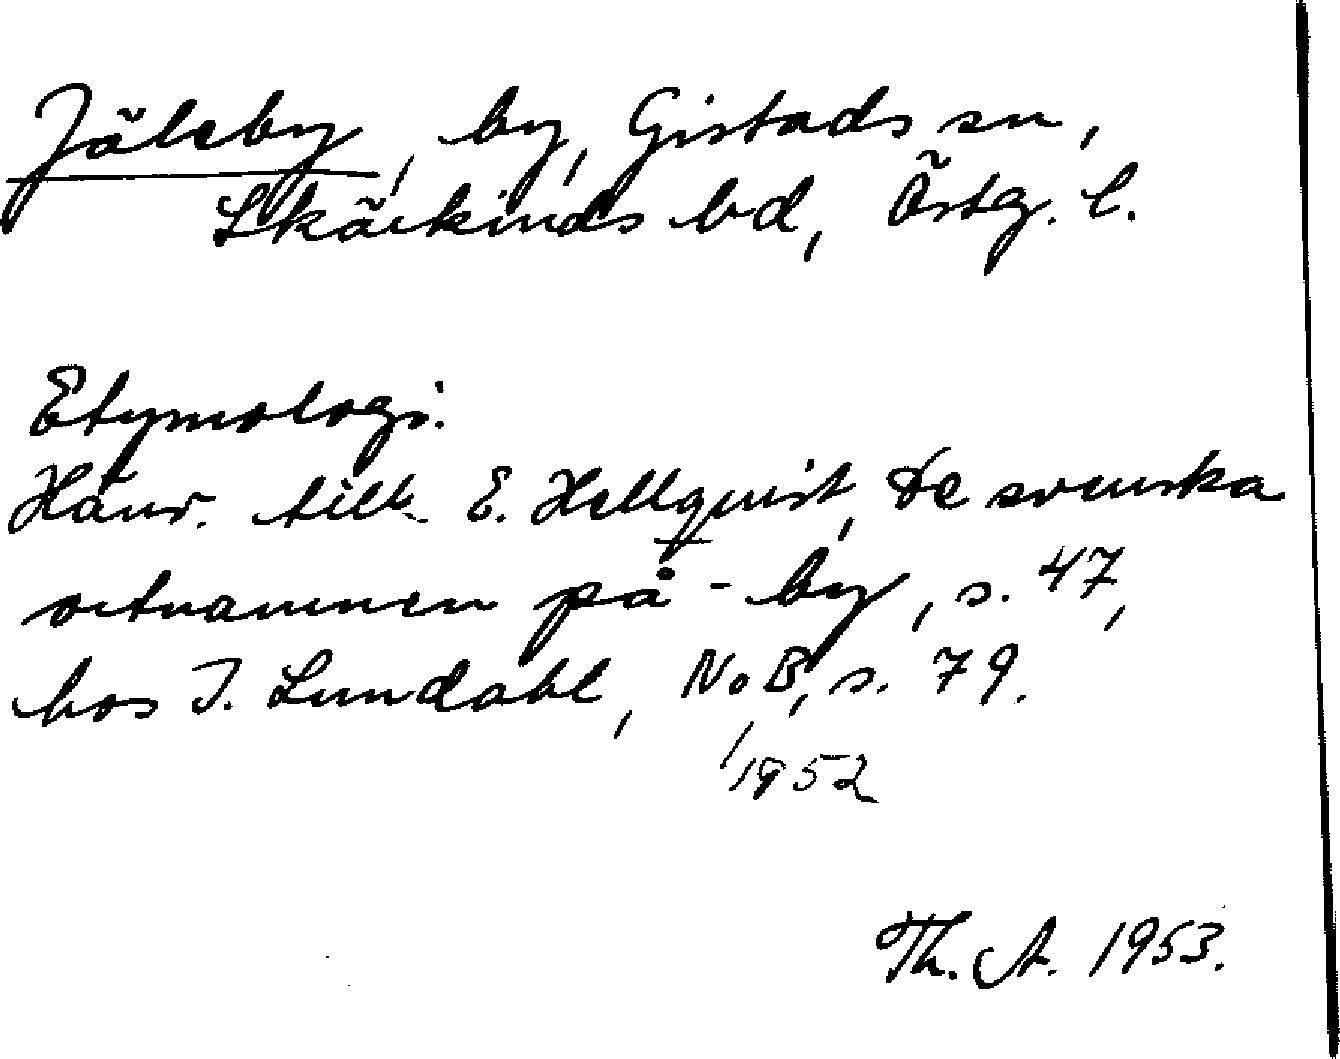 Jäleby, by, Gistads sn,
Skärkinds hd, Östg. l.
Etymologi.
Hänv. till E. Hellquist, De svenska
ortnamnen på -by, s. 47,
hos I. Lundahl, NoB, s. 79.
1952
Th. A. 1953.